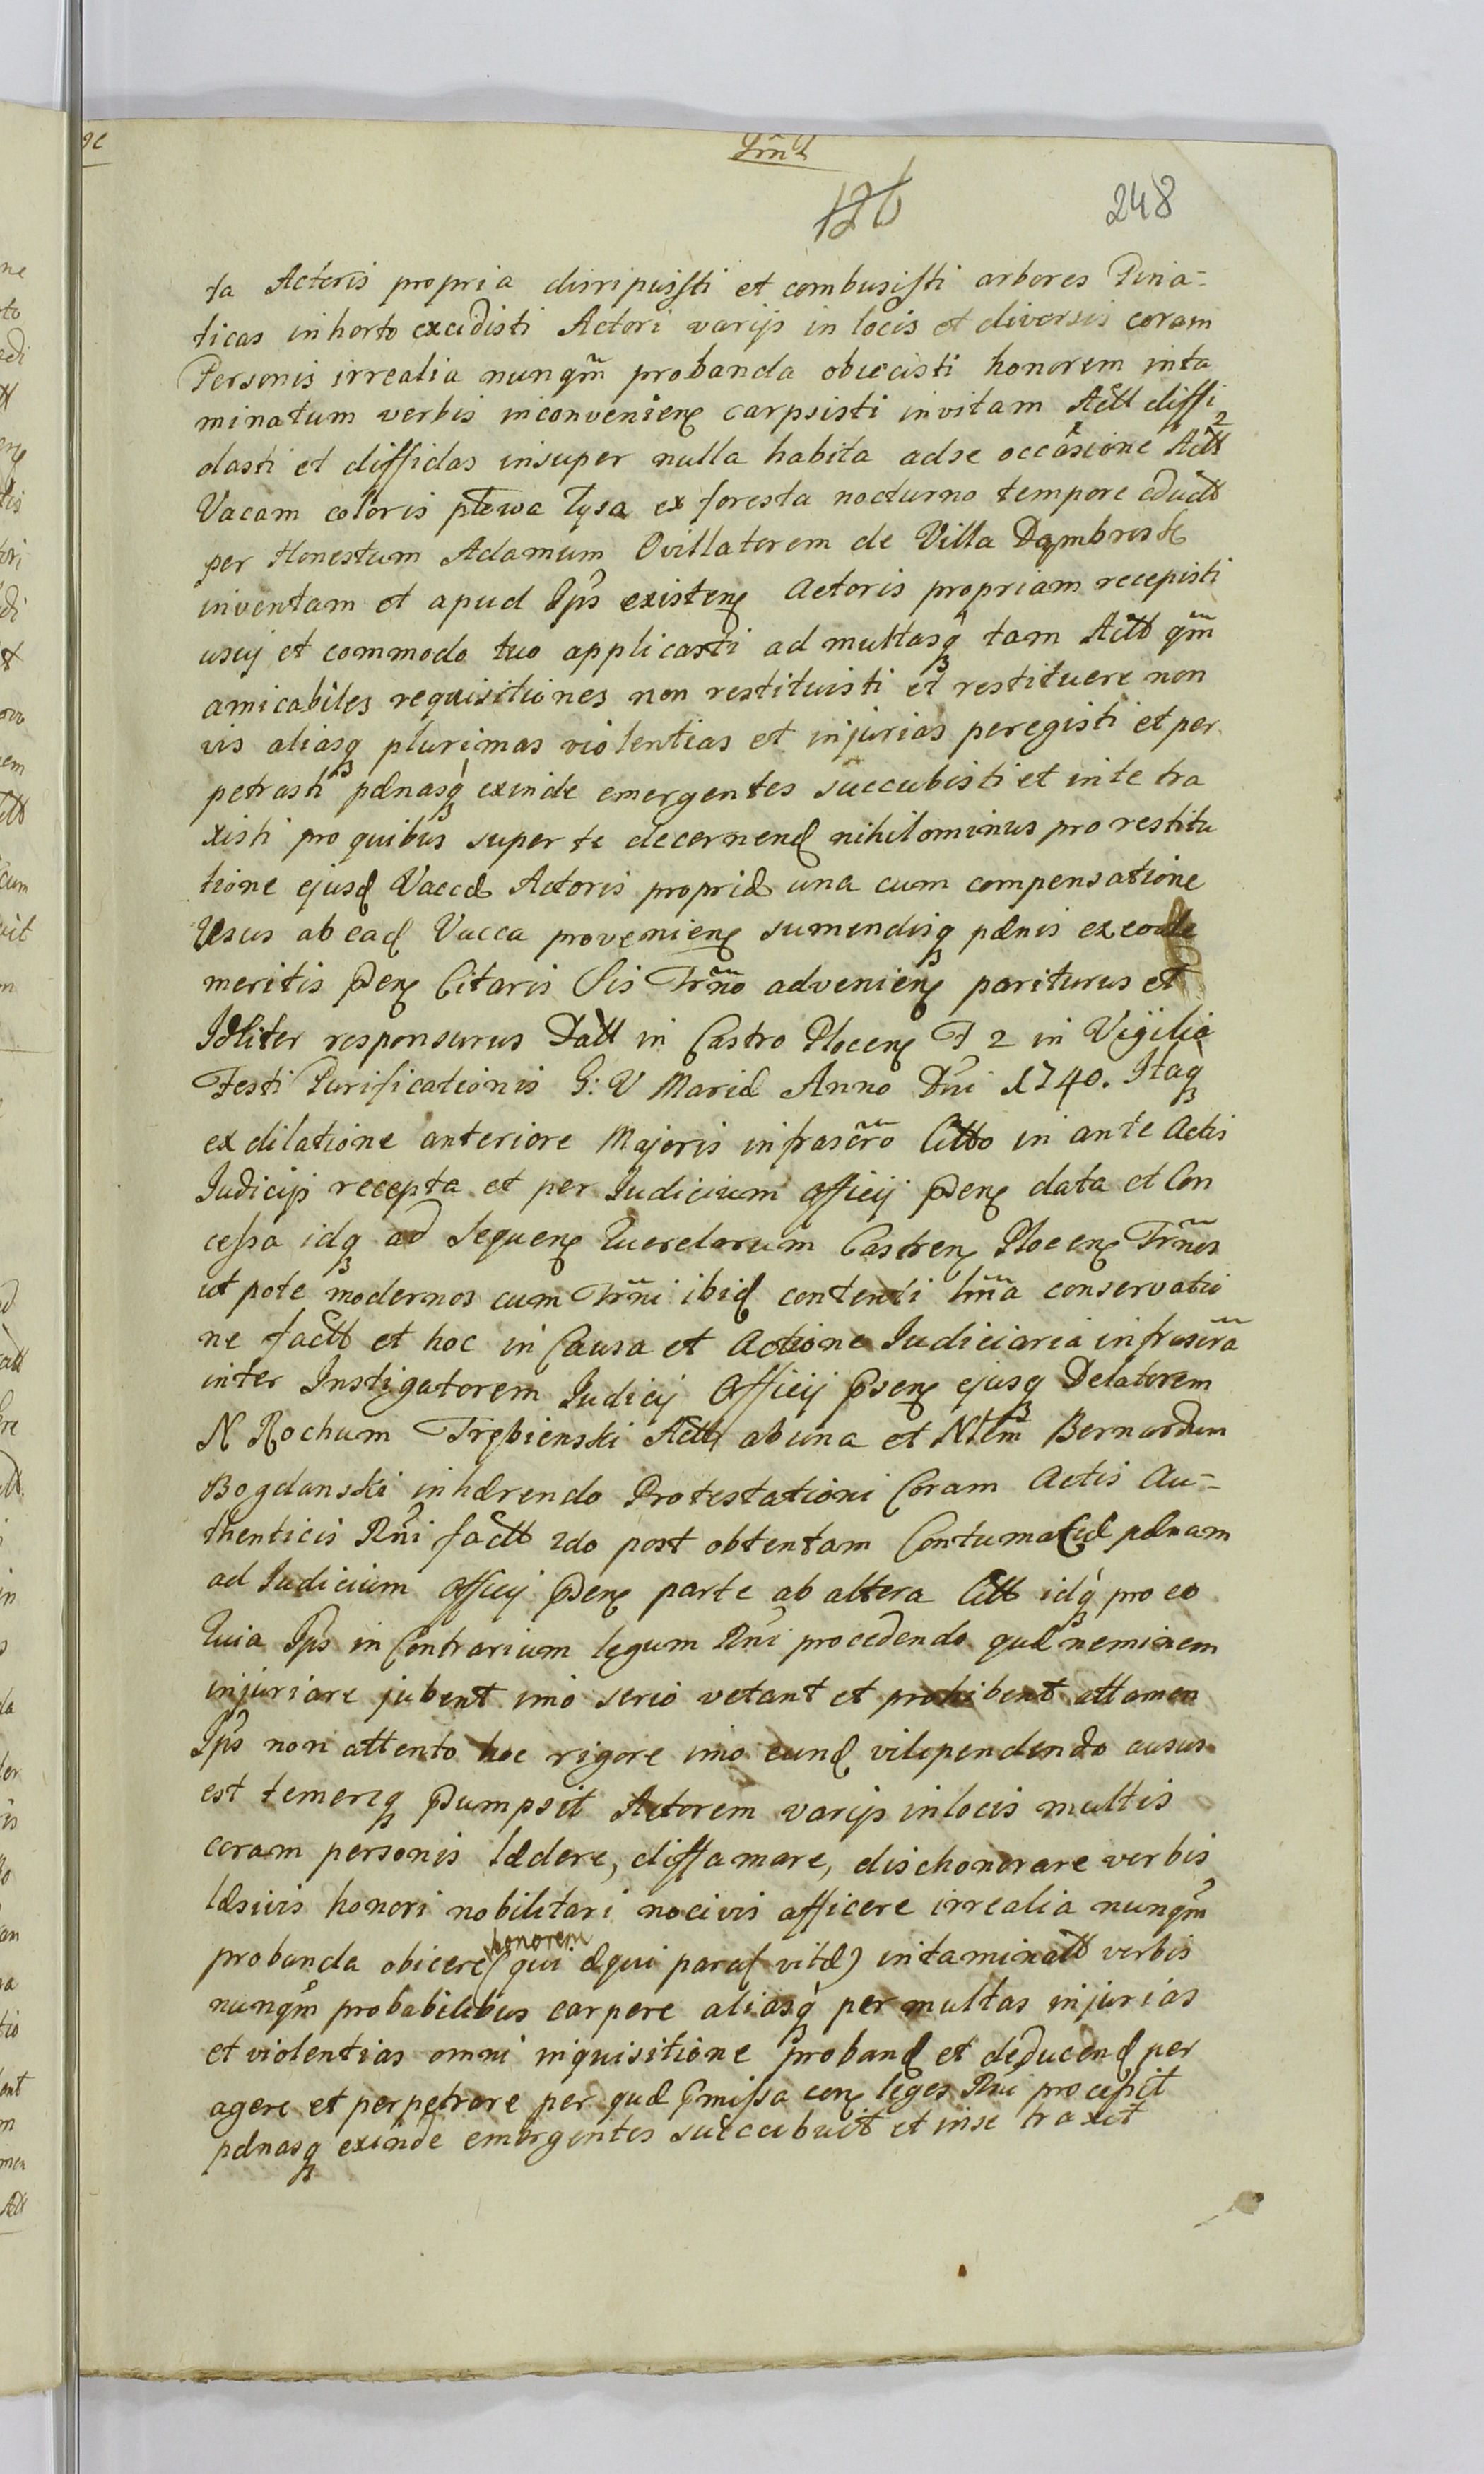 248
126
ta Actoris propria diripuisti et combusisti arbores Pina-
ticas in horto excidisti Actori varijs in locis et diversis coram
Personis irrealia nunqm̃ probanda obiecisti honorem inta
minatum verbis inconvenien carpsisti invitam Actt diffi
dasti et diffidas insuper nulla habita ad se occasione Actt
Vacam coloris płowa łysa ex foresta nocturno tempore eductt
per Honestum Adamum Ovillatorem de Villa Dąmbrosk
inventam et apud Ips existen Actoris propriam recepisti
usuj et commodo tuo applicasti ad multasq tam Actt qm̃
amicabiles requisitiones non restituisti et restituere non
vis aliasq plurimas violentias et injurias peregisti et per
petrasti pænasq exinde emergentes succubisti et in te tra
xisti pro quibus super te decernend nihilominus pro restitu
tione ejusd Vaccæ Actoris propriæ una cum compensatione
Usus ab ead Vacca provenien sumendisq pænis ex eode
meritis Pden Citaris Sis Trño advenien pariturus et
Idliter responsurus Datt in Castro Plocen F 2 in Vigilia
Festi Purificationis G: V Mariæ Anno Dni 1740. Itaq
ex dilatione anteriore Majoris infrascr̃o Citto in ante Actis
Judicijs recepta et per Judicium Officij Pden data et Con
cessa idq ad Sequen Querelarum Castren Plocen Trños
ut pote modernos cum Trñi ibid contenti lm̃a conservatio
ne factt et hoc in Causa et Actione Judiciaria infrascr̃a
inter Instigatorem Judicij Officij Psen ejusq Delatorem
N Rochum Trębienski Actt ab una et Nlem Bernardum
Bogdanski inhærendo Protestationi Coram Actis Au-
thenticis Rni factt 2do post obtentam Contumaciæ pænam
ad Judicium Officij Pden parte ab altera Citt idq pro eo
Quia Ips in Contrarium legum Rni procedendo quæ neminem
injuriare jubent imo serio vetant et prohibent attamen
Ips non attento hoc rigore imo eund vilipendendo ausus
est temereq Psumpsit Actorem varijs in locis multis
coram personis lædere, diffamare, dischonorare verbis
læsivis honori nobilitari nocivis afficere irrealia nunqm̃
probanda obicere honorem (qui æqui parat vitæ) intaminatt verbis
nunqm̃ probabilibus carpere aliasq per multas injurias
et violentias omni inquisitione proband et deducend per
agere et perpetrare per quæ Pmissa con leges Rni processit
pænasq exinde emergentes succubuit et in se traxit